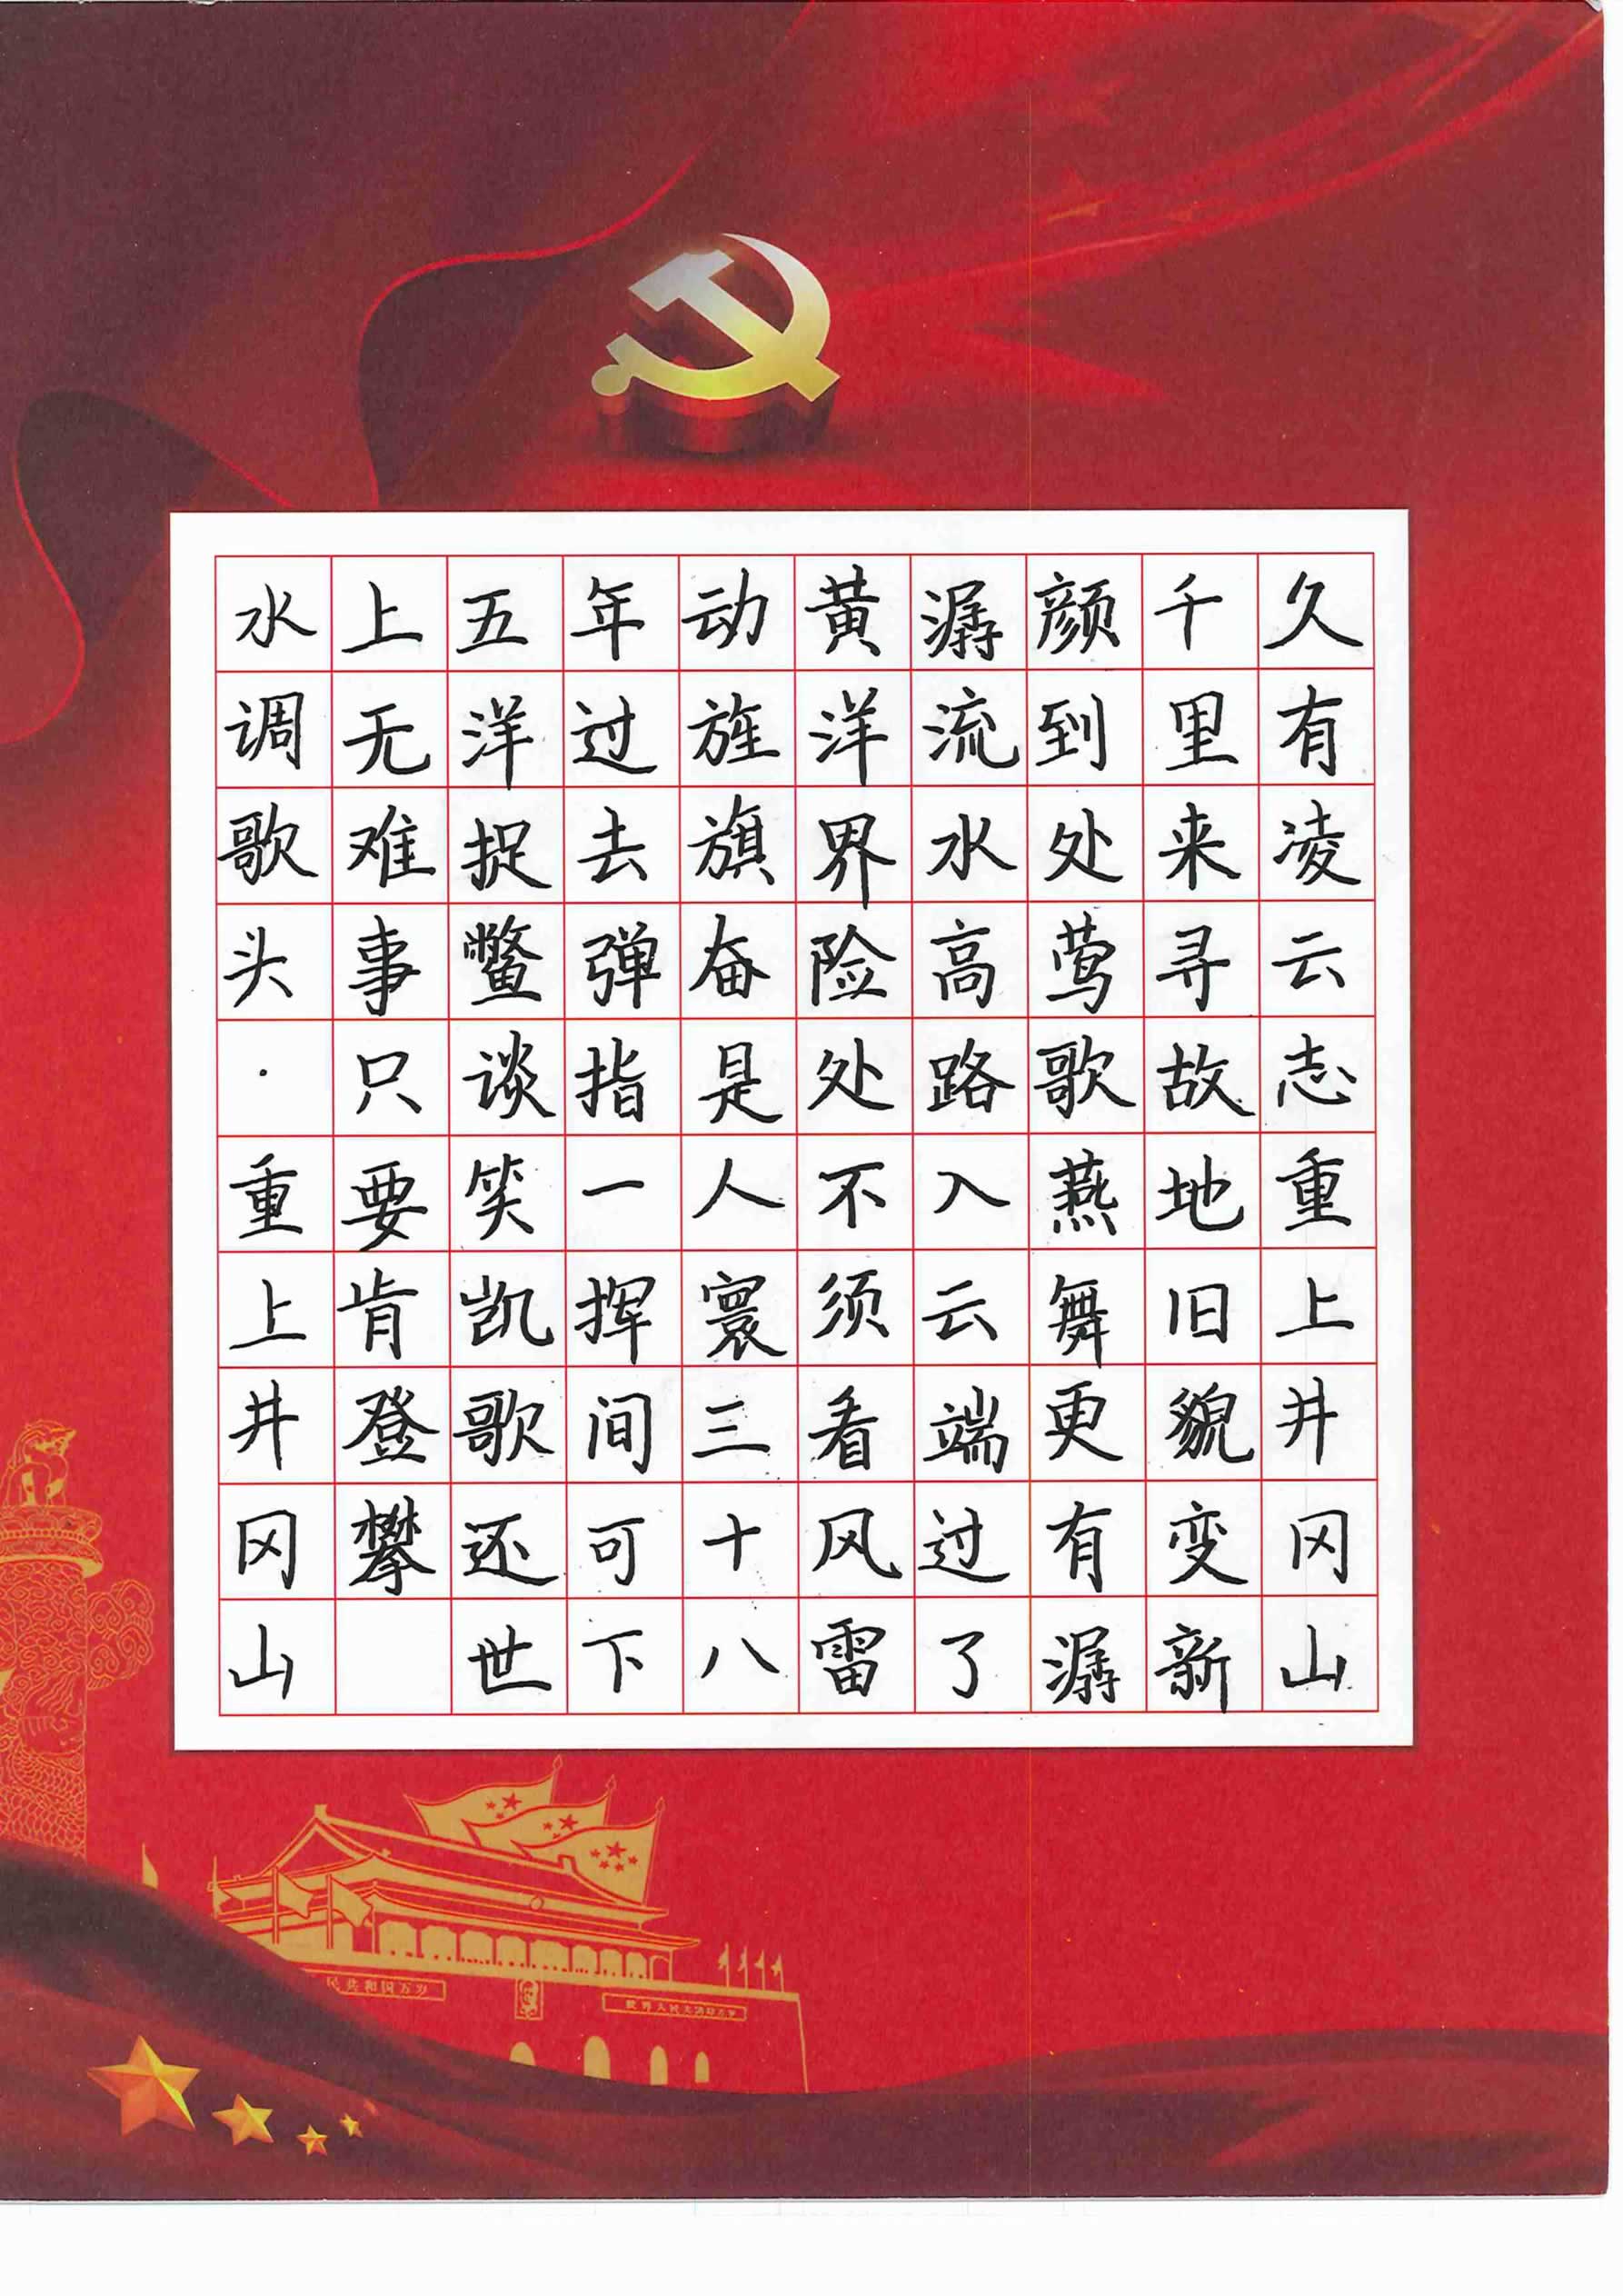 久有凌云志重上井冈山
千里来寻故地旧貌变新
颜到处莺歌燕舞更有潺
潺流水高路入云端过了
黄洋界险处不须看风雷
动旌旗奋是人寰三十八
年过去弹指一挥间可下
五洋捉鳖谈笑凯歌还世
上无难事只要肯登攀
水调歌头·重上井冈山
民共和国万岁